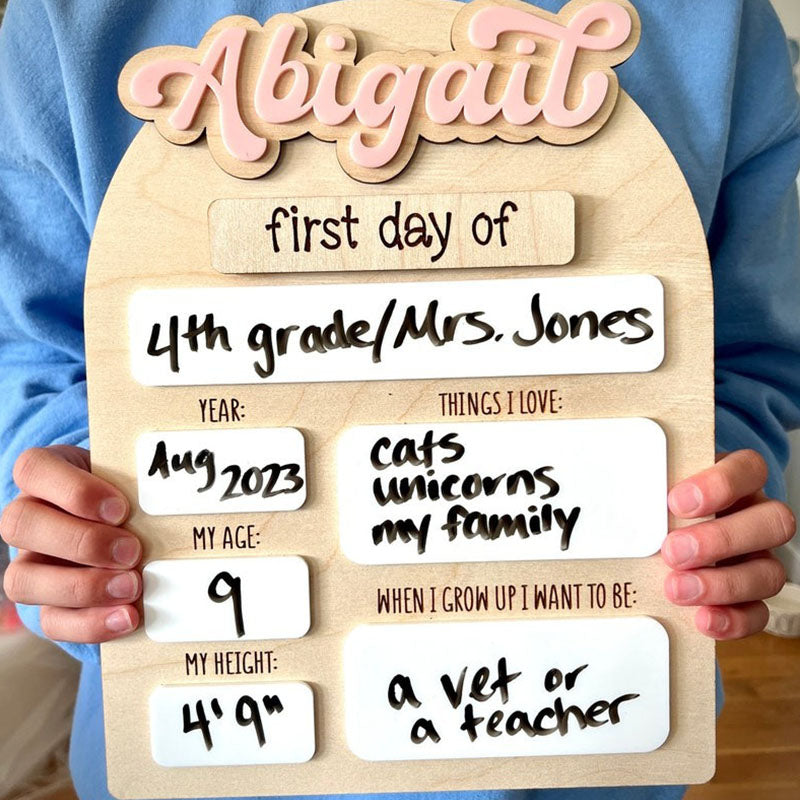 Abigail
first day of
4th grade/Mrs. Jones
YEAR:
Aug 2023
MY AGE:
9
MY HEIGHT:
4' 9"
THINGS I LOVE:
cats
unicorns
my family
WHEN I GROW UP I WANT TO BE:
a vet or
a teacher